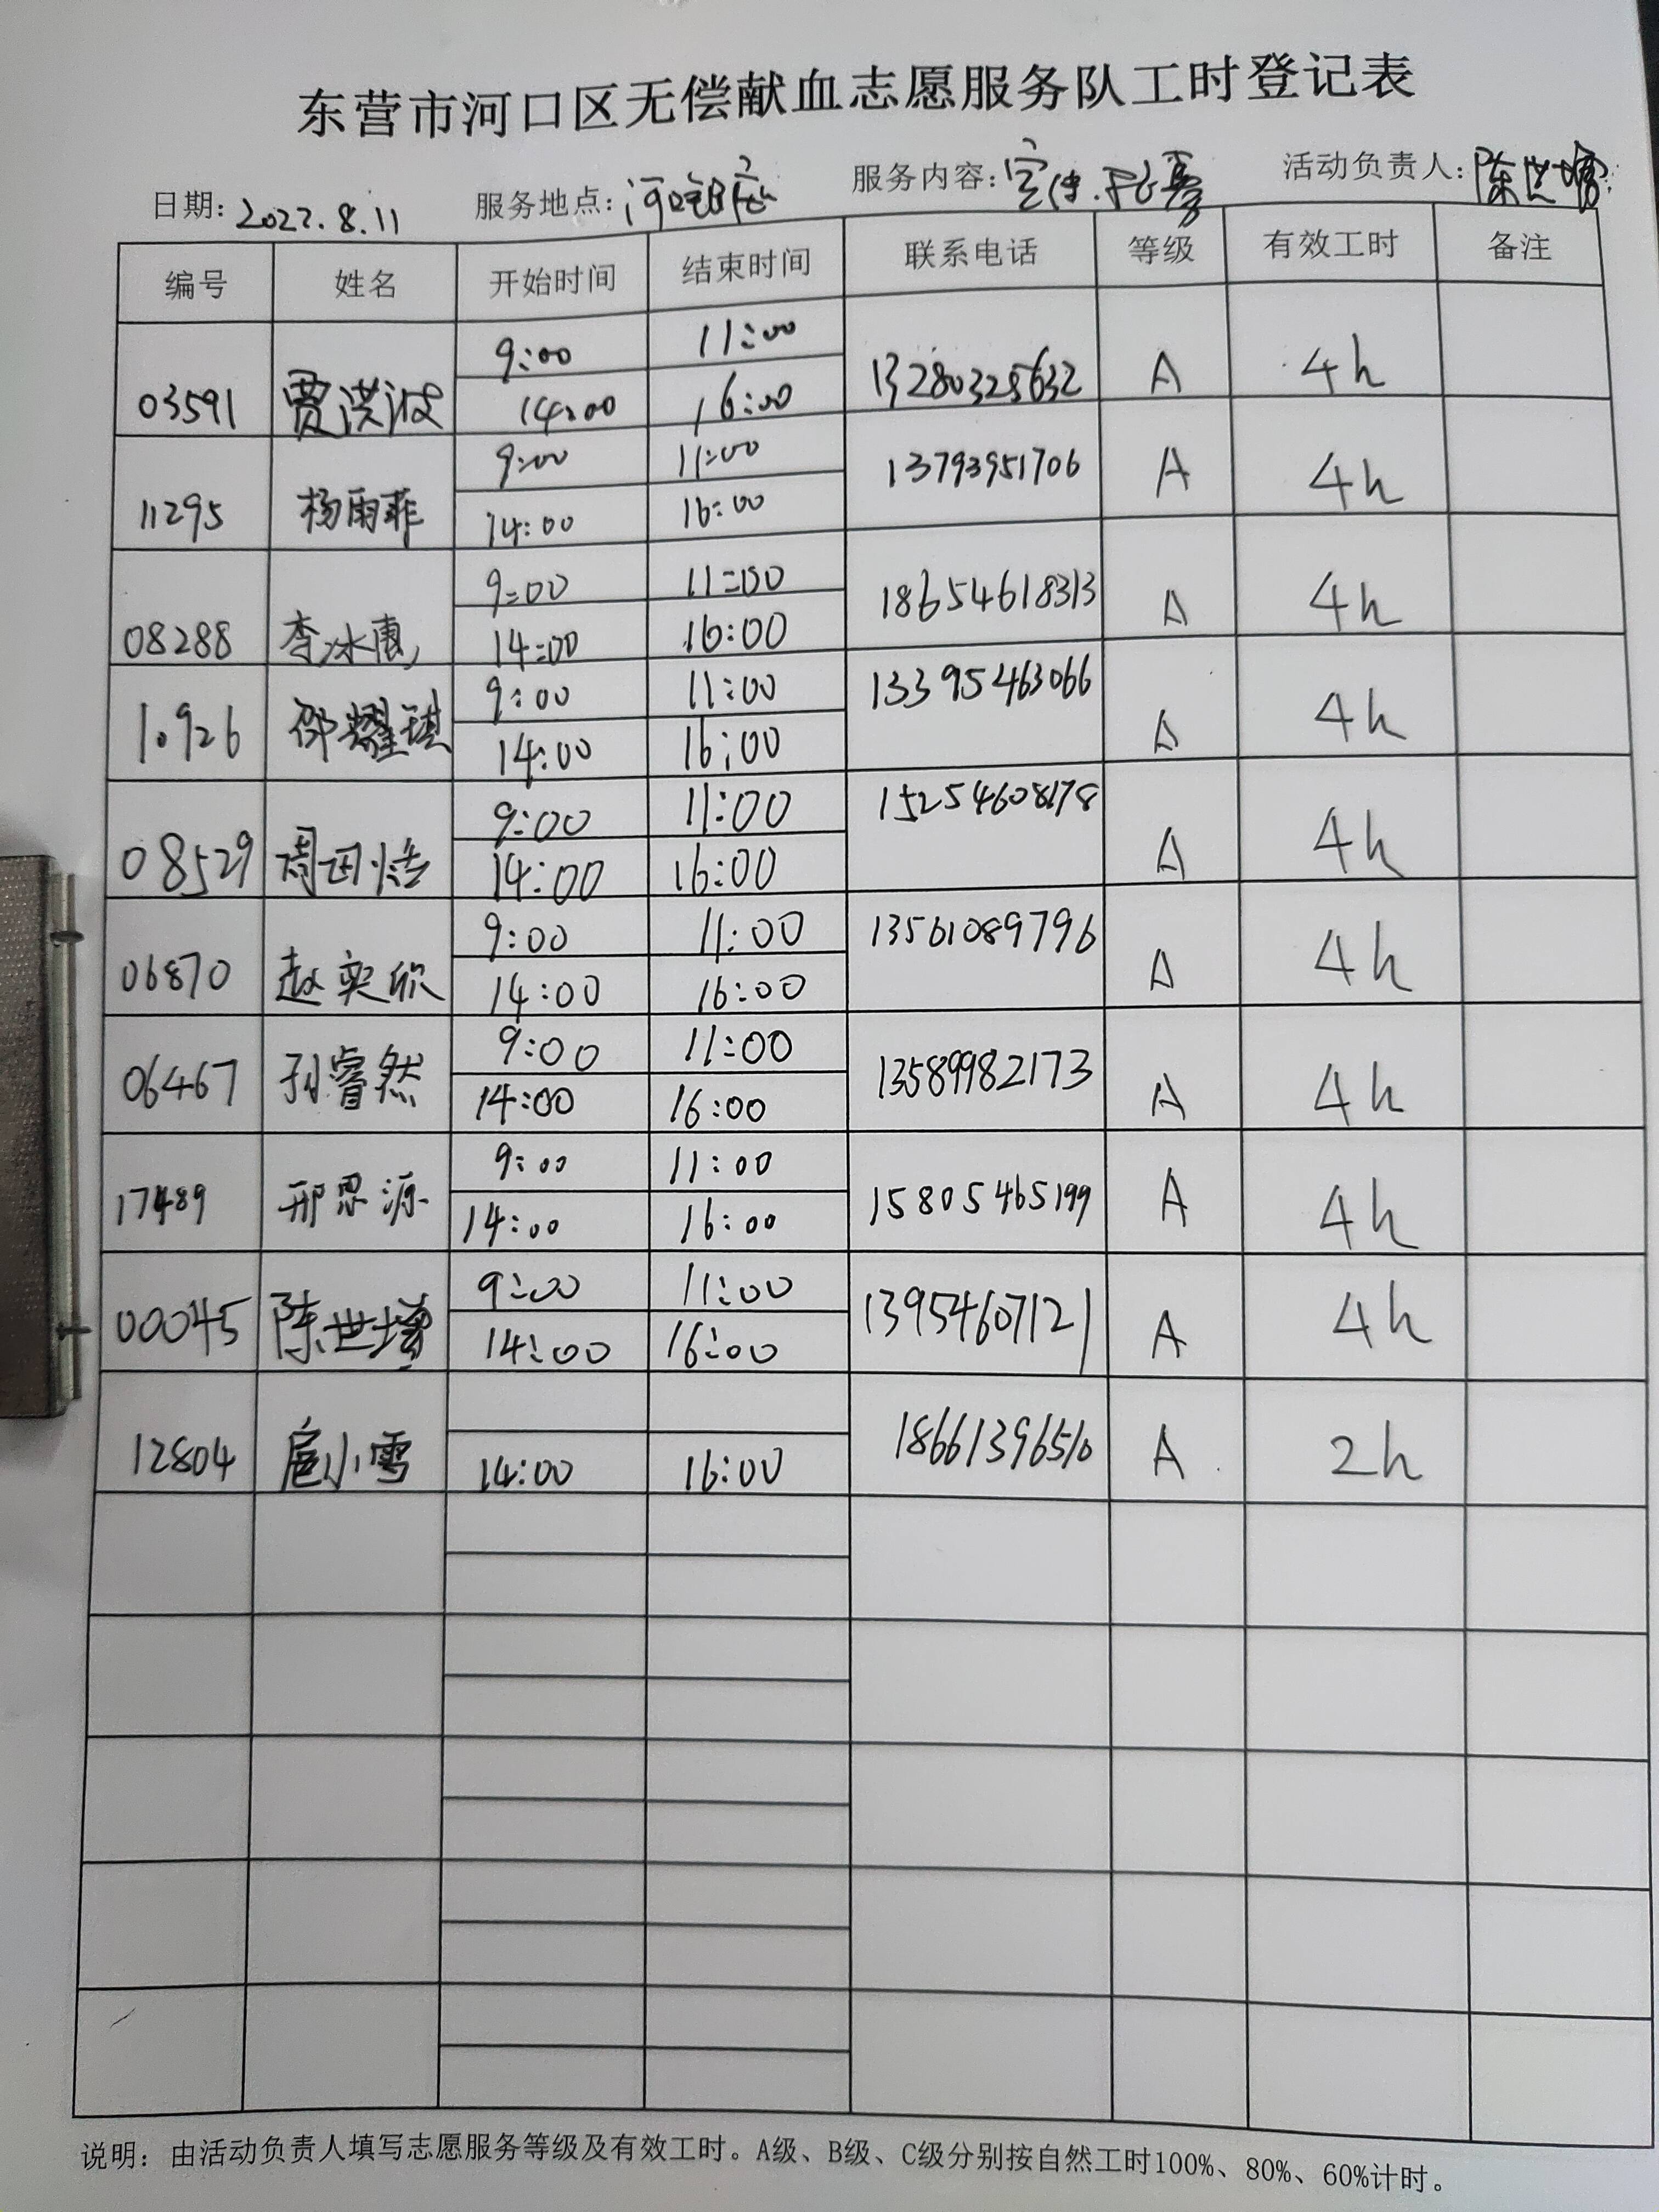 东营市河口区无偿献血志愿服务队工时登记表
日期: 2022.8.11 服务地点: 服务内容: 宣传. 活动负责人: 陈世增
编号 姓名 开始时间 结束时间 联系电话 等级 有效工时 备注
03591 贾洪波 9:00 11:00 13280325632 A 4h
14:00 16:00
11295 杨雨菲 9:00 11:00 13793951706 A 4h
14:00 16:00
08288 李冰惠 9:00 11:00 18654618313 A 4h
14:00 16:00
10926 邵耀琪 9:00 11:00 13395463066 A 4h
14:00 16:00
08529 周田恬 9:00 11:00 15254608178 A 4h
14:00 16:00
06870 赵奕欣 9:00 11:00 13561089796 A 4h
14:00 16:00
06467 孙睿然 9:00 11:00 13589982173 A 4h
14:00 16:00
17489 邢思源 9:00 11:00 15805465199 A 4h
14:00 16:00
00045 陈世增 9:00 11:00 13954607121 A 4h
14:00 16:00
12804 扈小雪 14:00 16:00 18661396510 A 2h
说明: 由活动负责人填写志愿服务等级及有效工时。A级、B级、C级分别按自然工时100%、80%、60%计时。